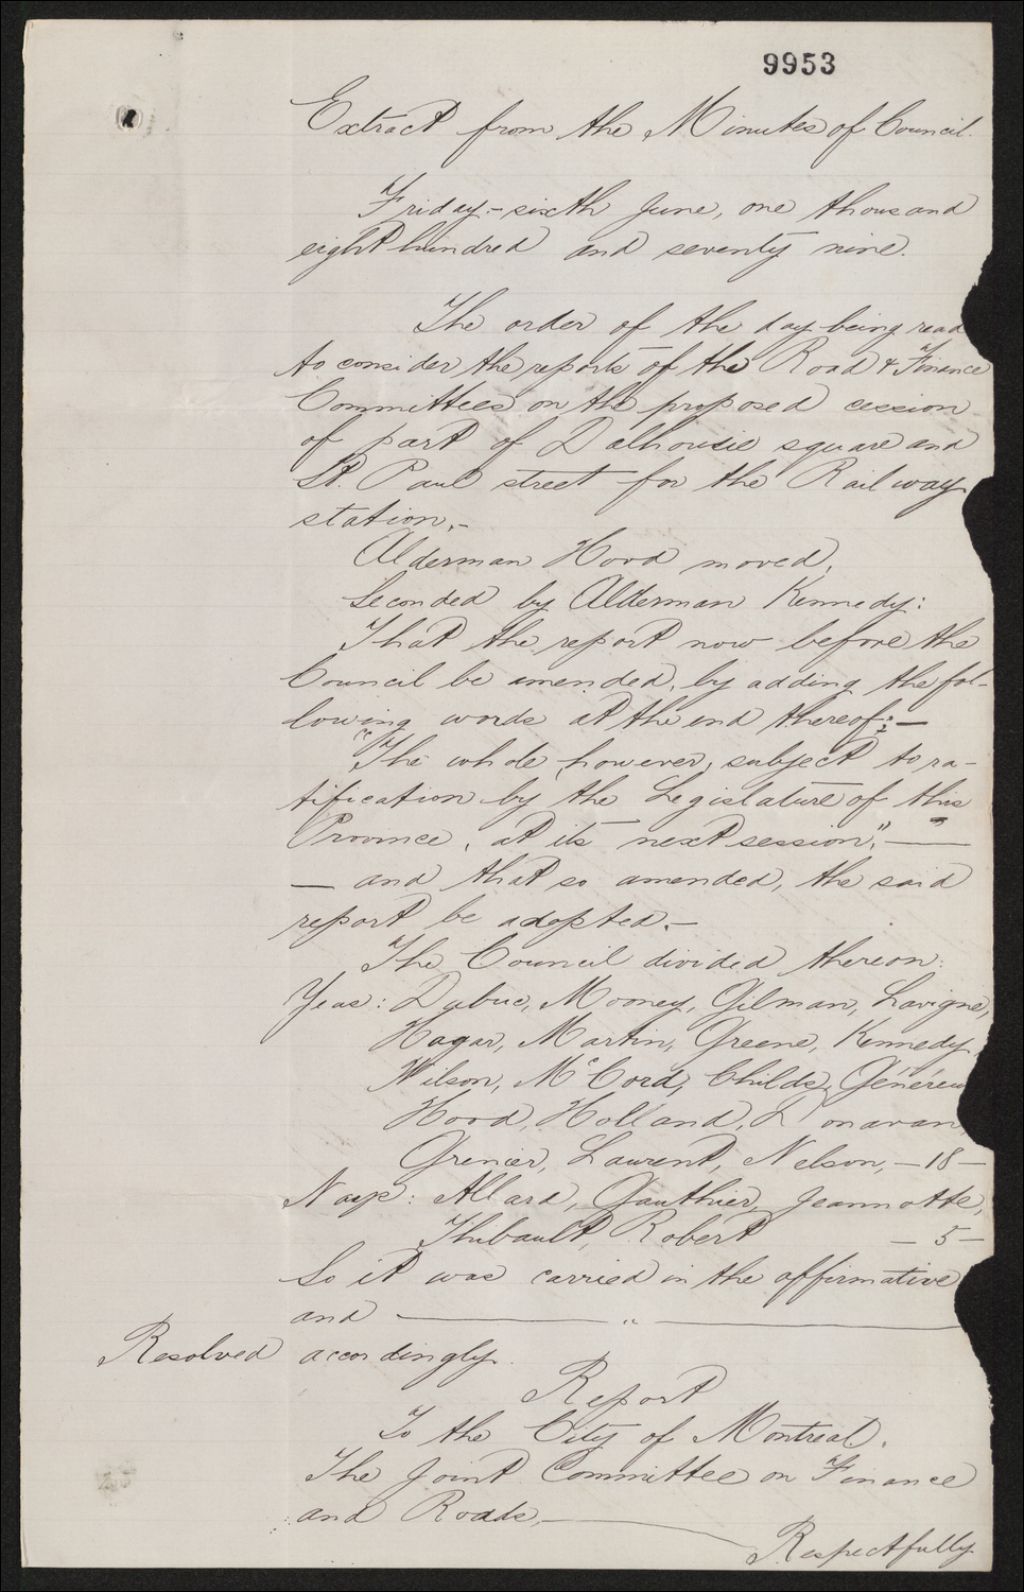 9953
Extract from the Minutes of Council.
Friday - sixth June, one thousand
eight hundred and seventy nine.
The order of the day being read
to consider the reports of the Road & Finance
Committees on the proposed cession
of part of Dalhousie square and
St. Paul street for the Railway
station.-
Alderman Hood moved,
Seconded by Alderman Kennedy:
That the report now before the
Council be amended, by adding the fol-
lowing words at the end thereof: —
"The whole, however, subject to ra-
tification by the Legislature of this
Province, at its next session," —
— and that so amended, the said
report be adopted.-
The Council divided thereon:
Yeas: Dubuc, Mooney, Gilman, Lavigne,
Hagar, Martin, Greene, Kennedy
Wilson, McCord, Childs, Généreu
Hood, Holland, Donavan
Grenier, Laurent, Nelson, — 18 —
Nays: Allard, Gauthier, Jeannotte,
Thibault, Robert — 5 —
So it was carried in the affirmative
and — " —
Resolved accordingly.
Report
To the City of Montreal.
The Joint Committee on Finance
and Roads, —
Respectfully